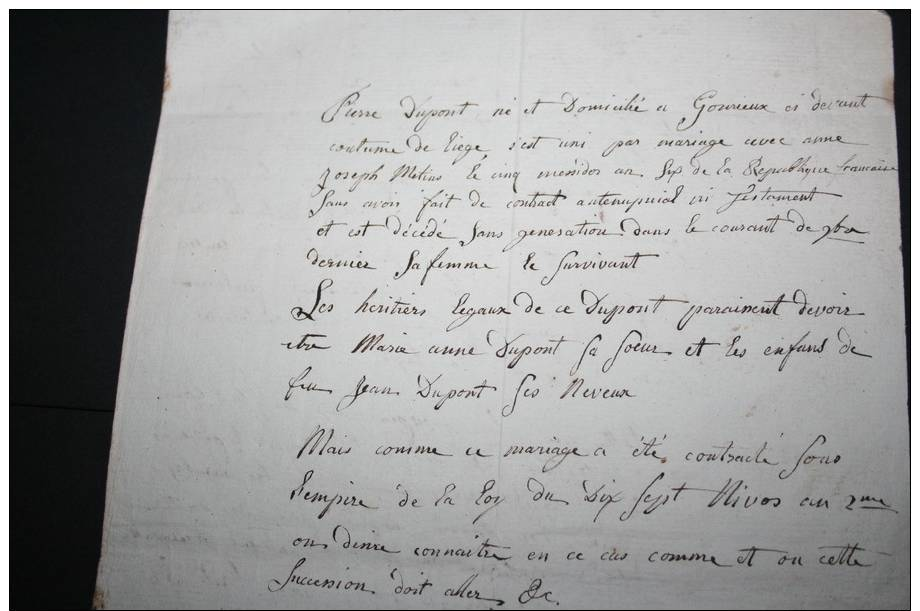 Pierre Dupont né et Domicilié a Gonrieux ci devant
coutume de Liege s'est uni par mariage avec anne
Joseph Metins le cinq méssidor an Six de la Republique francaise
Sans avoir fait de contract antenuptial ni Testament
et est décédé Sans generation dans le courant de 9bre
dernier Sa femme le Survivant
Les héritiers legaux de ce Dupont paraissent devoir
etre Marie anne Dupont Sa Soeur et les enfans de
feu Jean Dupont Ses Neveux
Mais comme ce mariage a été contracté Sous
l'empire de la Loy du Dix Sept Nivos an 2me
on désire connaitre en ce cas comme et ou cette
Succession doit aller &c.